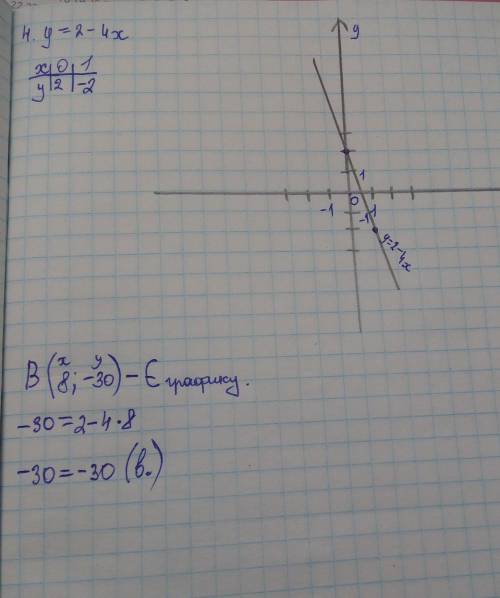 4. y = 2 - 4x
x 0 1
y 2 -2
y
1
0
-1
1
-1
y=2-4x
x y
B (8; -30) - ∈ графику.
-30 = 2 - 4 · 8
-30 = -30 (в.)